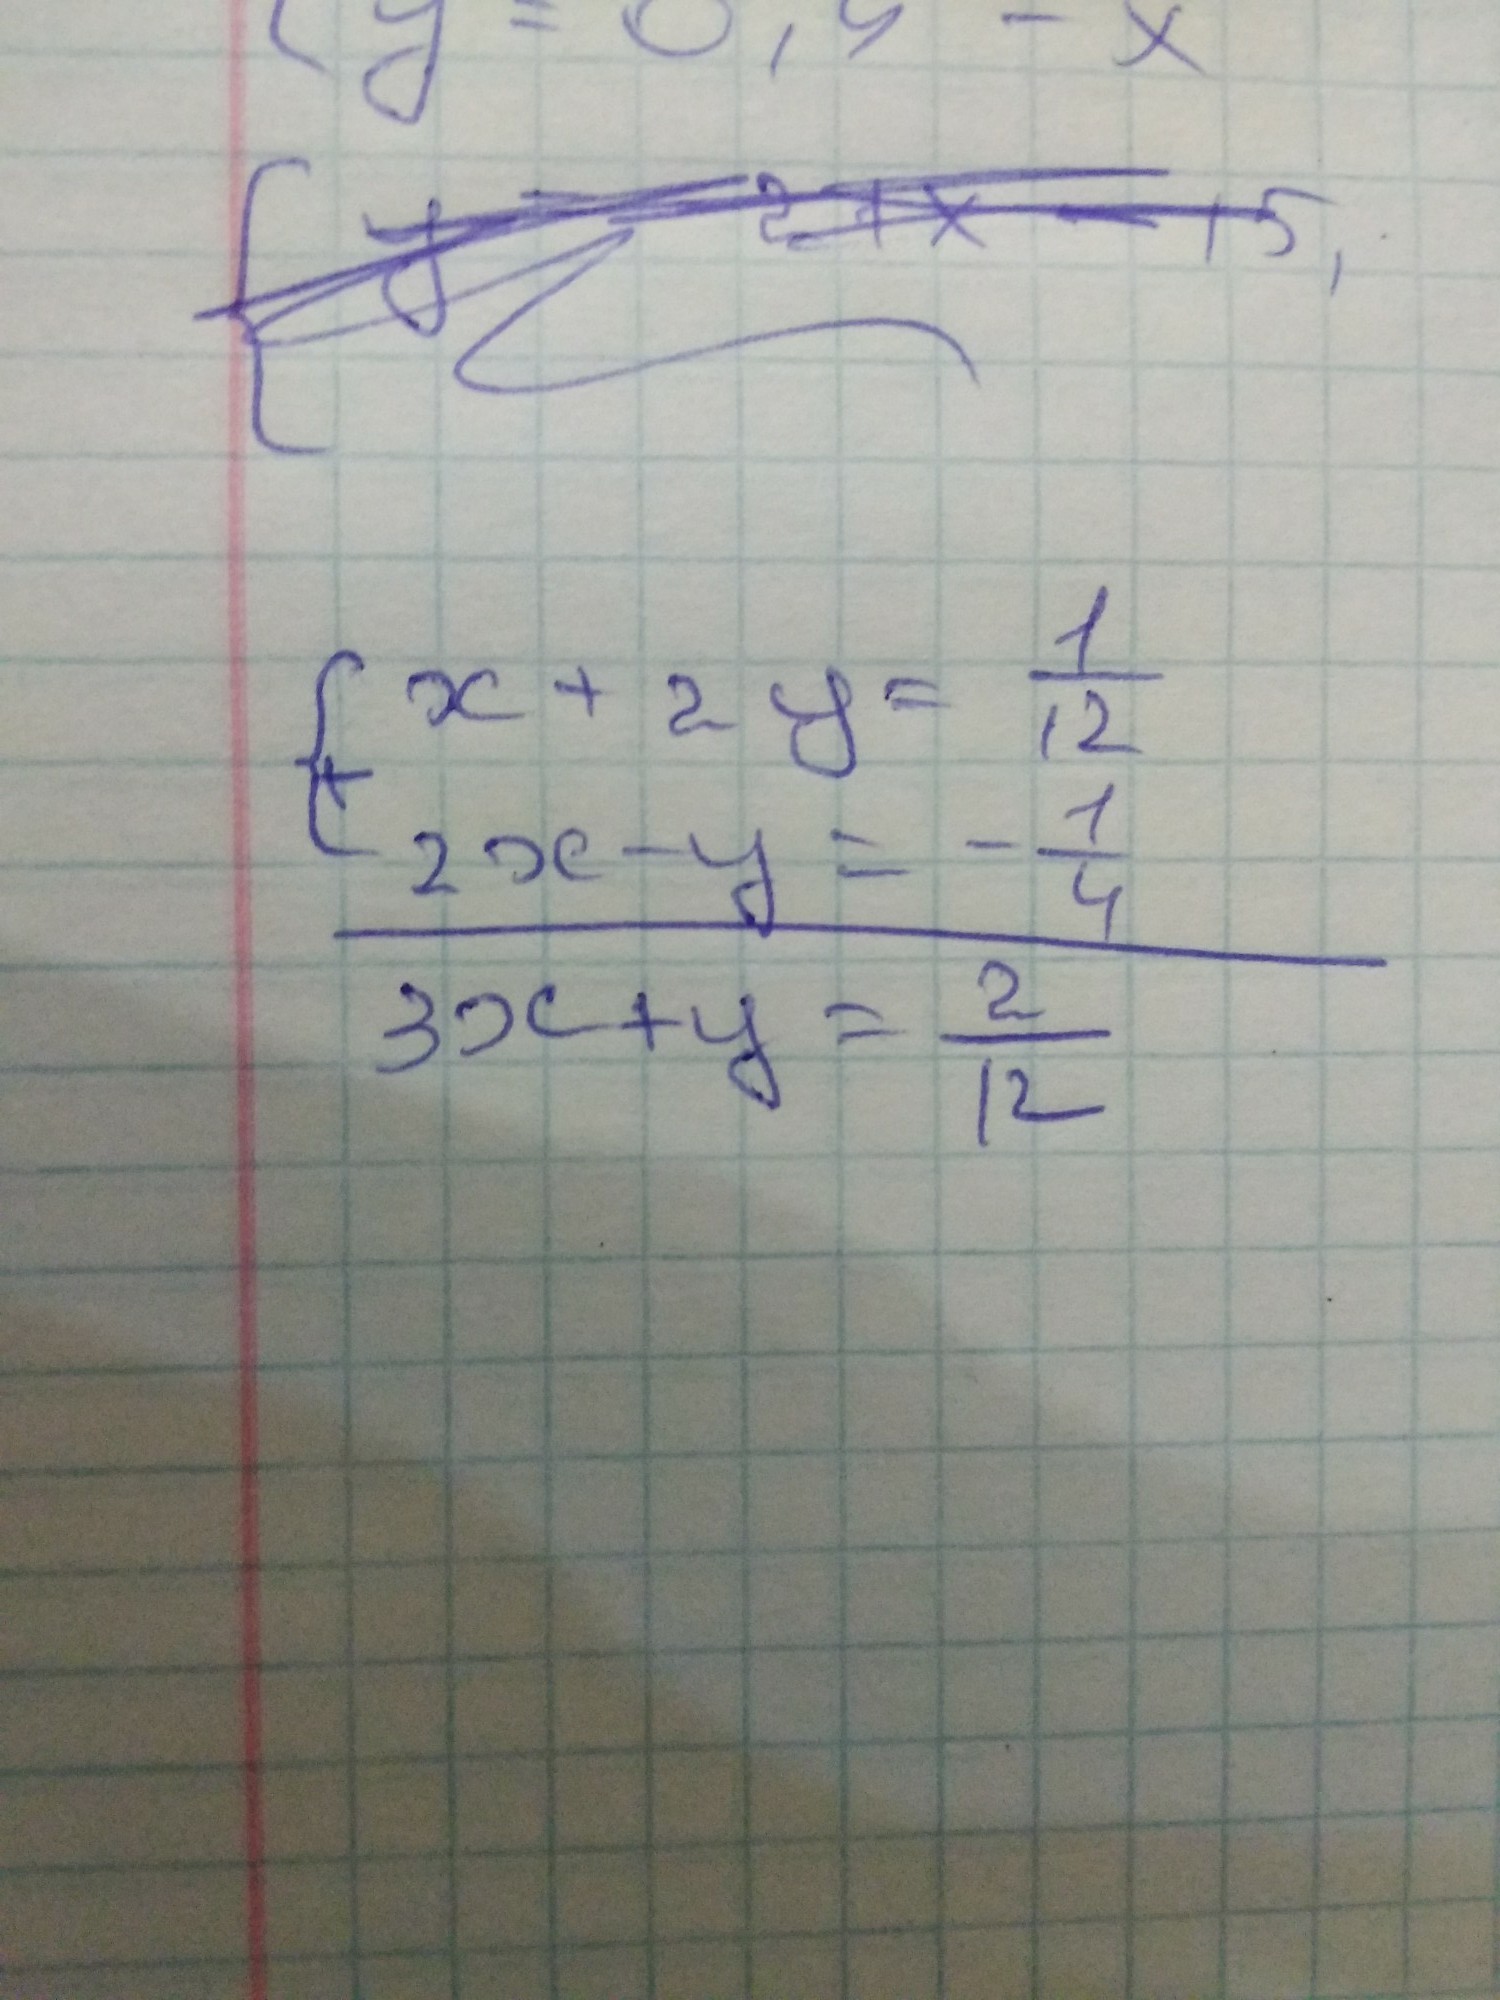 { y = 0,4 - x
{ x + 2y = 1/12
+
2x - y = - 1/4
3x + y = 2/12